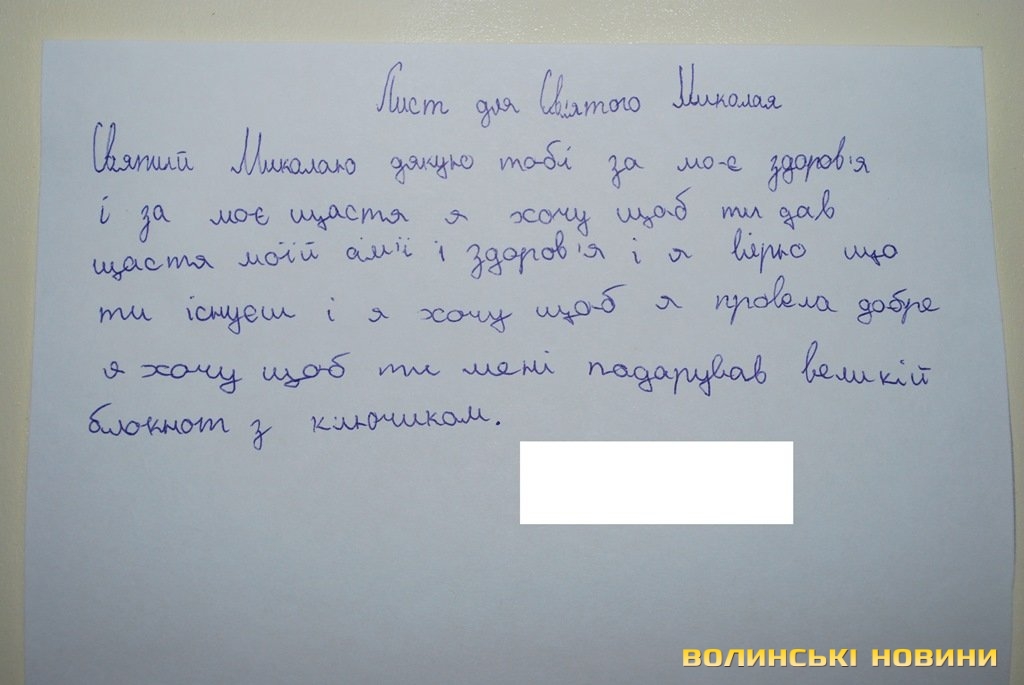 Лист для Святого Миколая
Святий Миколаю дякую тобі за мо-є здоров'я
і за моє щастя я хочу щоб ти дав
щастя моїй сім'ї і здоров'я і я вірю що
ти існуєш і я хочу щоб я провела добре
я хочу щоб ти мені подарував великій
блокнот з ключиком.
ВОЛИНСЬКІ НОВИНИ